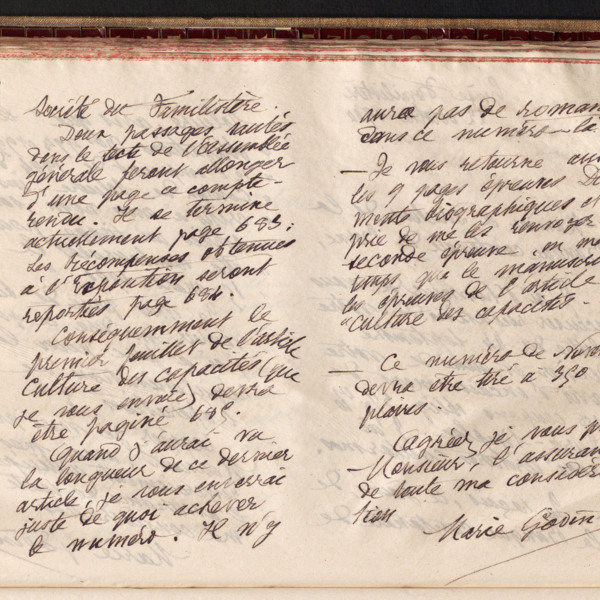 Société du Familistère.
Deux passages
dans le texte de l'assemblée
générale feront allonger
d'une page ce compte-
rendu. Il se termine
actuellement page 683;
Les récompenses obtenues
à l'Exposition seront
reportées page 684.
Conséquemment le
premier feuillet de l'article
culture des capacités (que
je vous envoie) devra
être paginé 685.
Quand j'aurai vu
la longueur de ce dernier
article, je vous enverrai
juste de quoi achever
le numéro. Il n'y
aura pas de roman
dans ce numéro-là
— Je vous retourne
les 9 pages épreuves
biographiques et
prie de me les renvoyer
seconde épreuve, en
temps que le manuscri
les épreuves de l'article
"culture des capacités.
— Ce numéro de Nov
devra être tiré à 350
plaires.
Agréez, je vous p
Monsieur, l'assuran
de toute ma considér
tion
Marie Godin